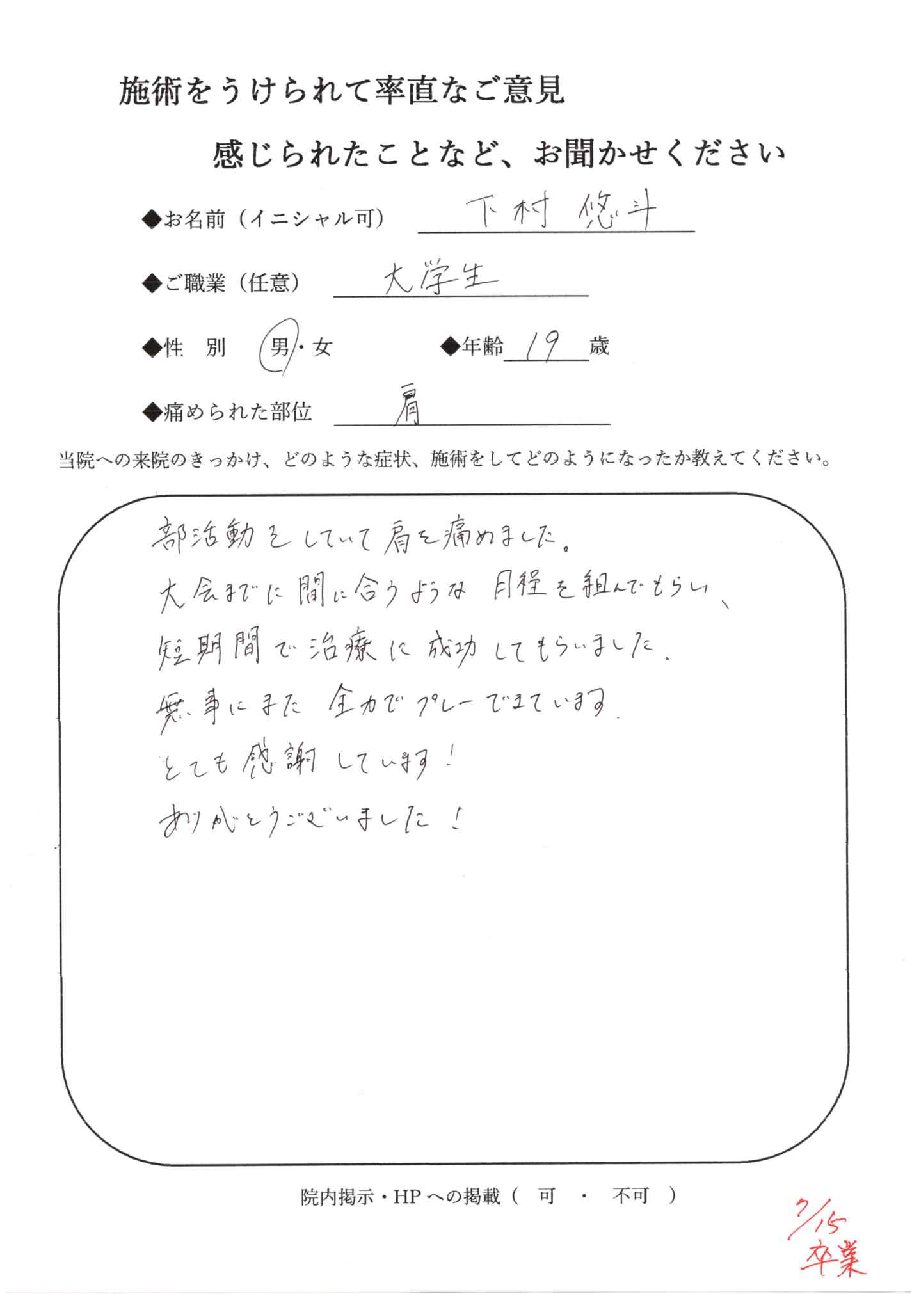 施術をうけられて率直なご意見
感じられたことなど、お聞かせください
◆お名前（イニシャル可） 下村 悠斗
◆ご職業（任意） 大学生
◆性 別 男・女 ◆年齢 19 歳
◆痛められた部位 肩
当院への来院のきっかけ、どのような症状、施術をしてどのようになったか教えてください。
部活動をしていて肩を痛めました。
大会までに間に合うような日程を組んでもらい、
短期間で治療に成功してもらいました.
無事にまた 全力でプレーできています.
とても感謝しています!
ありがとうございました!
院内掲示・HPへの掲載（ 可 ・ 不可 ）
7/15
卒業